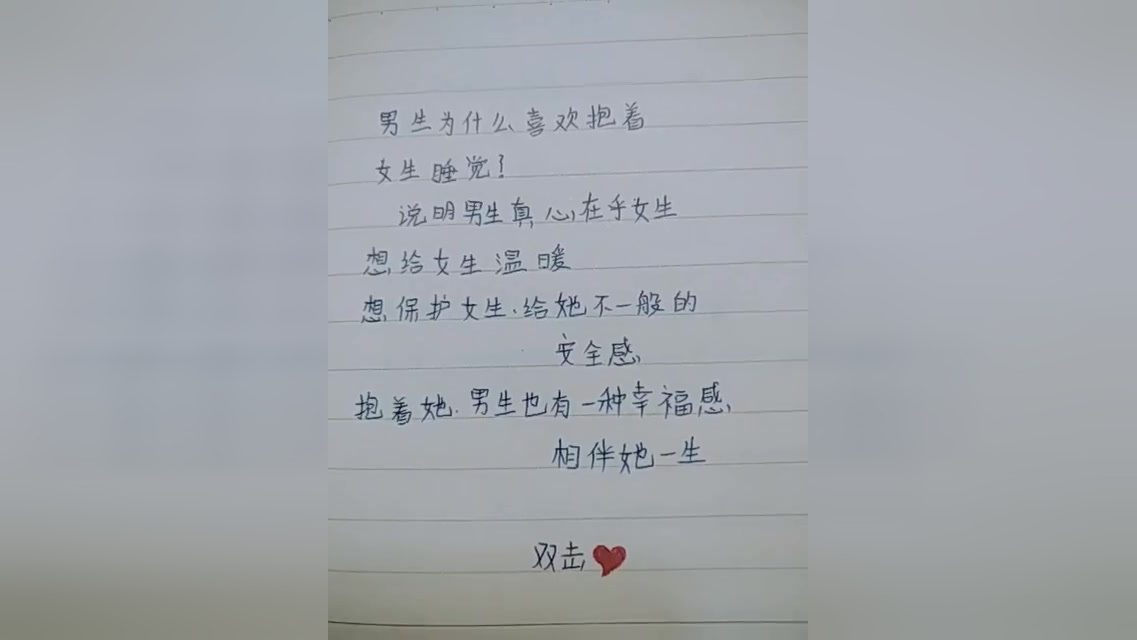 男生为什么喜欢抱着
女生睡觉?
说明男生真心在乎女生
想给女生温暖
想保护女生.给她不一般的
安全感
抱着她.男生也有一种幸福感
相伴她一生
双击